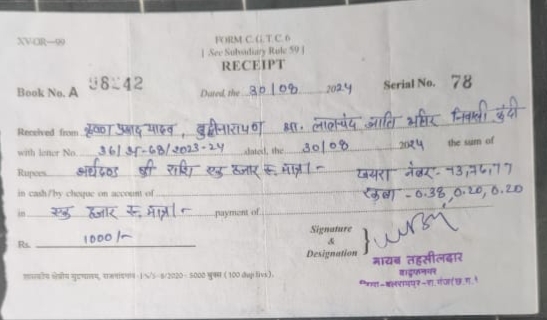 XV-OR-99
FORM C.G.T.C. 6
[ See Subsidiary Rule 59 ]
RECEIPT
Book No. A 98242 Dated, the 30/08 2024 Serial No. 78
Received from कृष्णा प्रसाद यादव, बुद्धीनारायण आ. लालचंद जाति अहिर निवासी कुंदी
with letter No. 36/अ-68/2023-24 dated, the 30/08 2024 the sum of
Rupees अर्थदण्ड की राशि एक हजार रू. मात्र/- खसरा नंबर - 73,76,77
in cash/by cheque on account of रकबा - 0.38, 0.20, 0.20
in एक हजार रू. मात्र/- payment of
Signature
&
Designation
Rs. 1000/-
नायब तहसीलदार
वाड्रफनगर
जिला-बलरामपुर-रा.गंज(छ.ग.)
शासकीय क्षेत्रीय मुद्रणालय, राजनांदगांव-1-s/5-8/2020- 5000 बुक्स (100 dup livs).